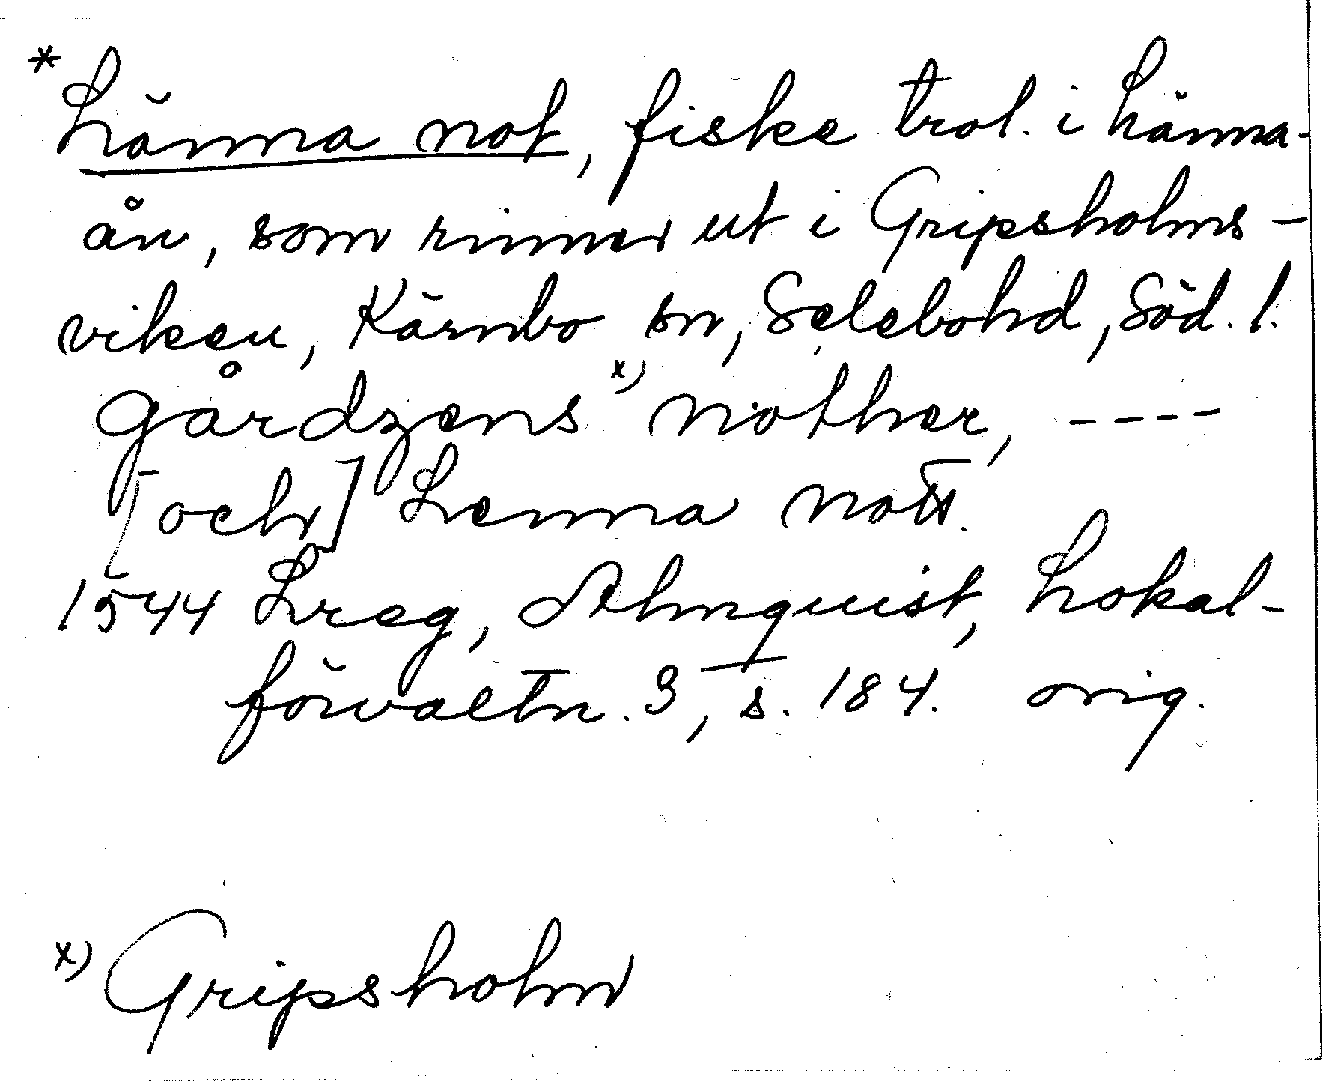 * Länna not, fiske trol. i Länna-
ån, som rinner ut i Gripsholms-
viken, Kärnbo sn, Selebohd, Söd. l.
gårdzens x) nother, ----
[och] Lenna nott.
1544 Lreg, Almquist, Lokal-
förvaltn. 3, s. 184. orig.
x) Gripsholm